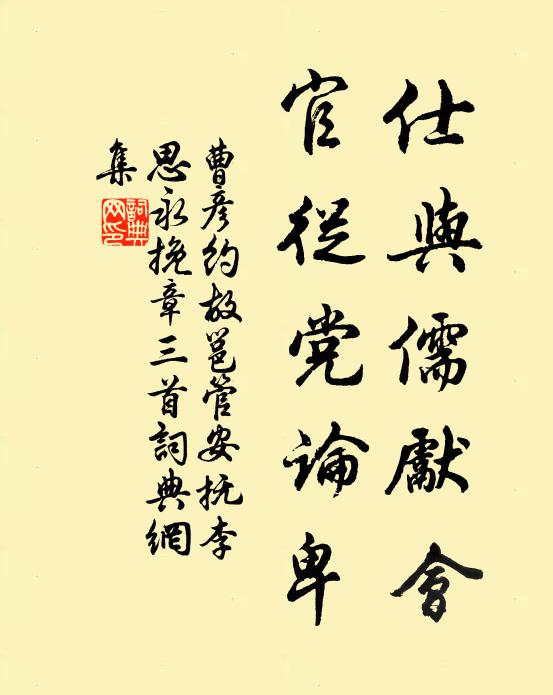 仕與儒獻會
官從党論卑
曹彦約故邕管安抚李
思永挽章三首詞典網
集
詞典网印